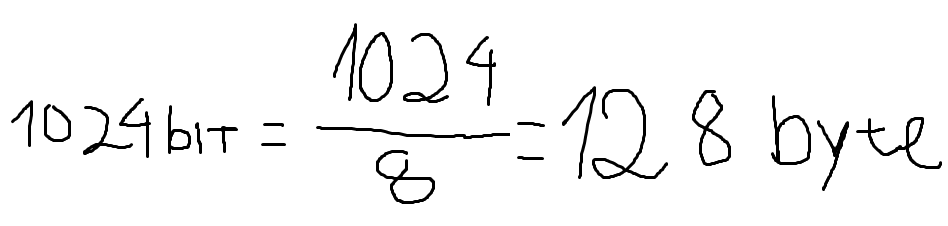 1024bit = 1024/8 = 128 byte